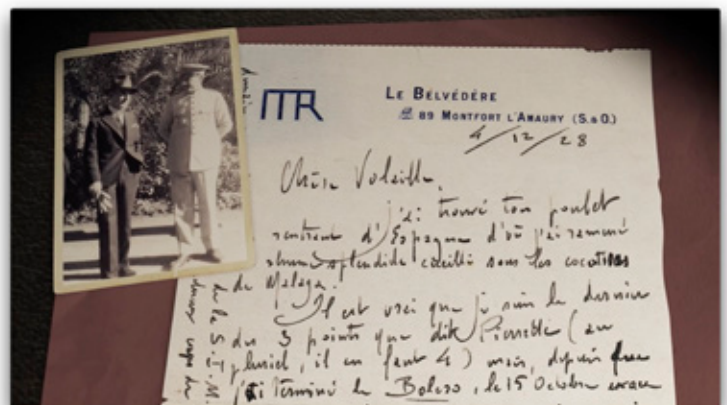 MR
LE BELVÉDÈRE
89 MONTFORT L'AMAURY (S.&O.)
4/12/28
Chère Volaille,
j'ai trouvé ton poulet
rentrant d'Espagne d'où j'ai ramené
rhume splendide cueilli sous les cocotiers
de Malaga.
Il est vrai que je suis le dernier
des 3 points que dit Pierrette (au
pluriel, il en faut 4) mais, depuis que
j'ai terminé le Bolero, le 15 Octobre
de la S.I.M.